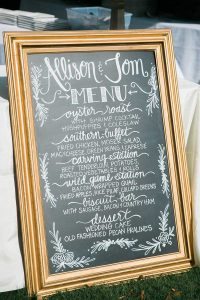 Allison & Tom
MENU
oyster roast
WITH SHRIMP COCKTAIL
HUSHPUPPIES & COLESLAW
southern buffet
FRIED CHICKEN, MOSER SALAD
MAC & CHEESE, GREEN BEANS, ASPARAGUS
carving station
BEEF TENDERLOIN, POTATOES
ROASTED VEGETABLES & ROLLS
wild game station
BACON WRAPPED QUAIL
FRIED APPLES, RICE PILAF, COLLARD GREENS
biscuit bar
WITH SAUSAGE, BACON & COUNTRY HAM
dessert
WEDDING CAKE
OLD FASHIONED PECAN PRALINES